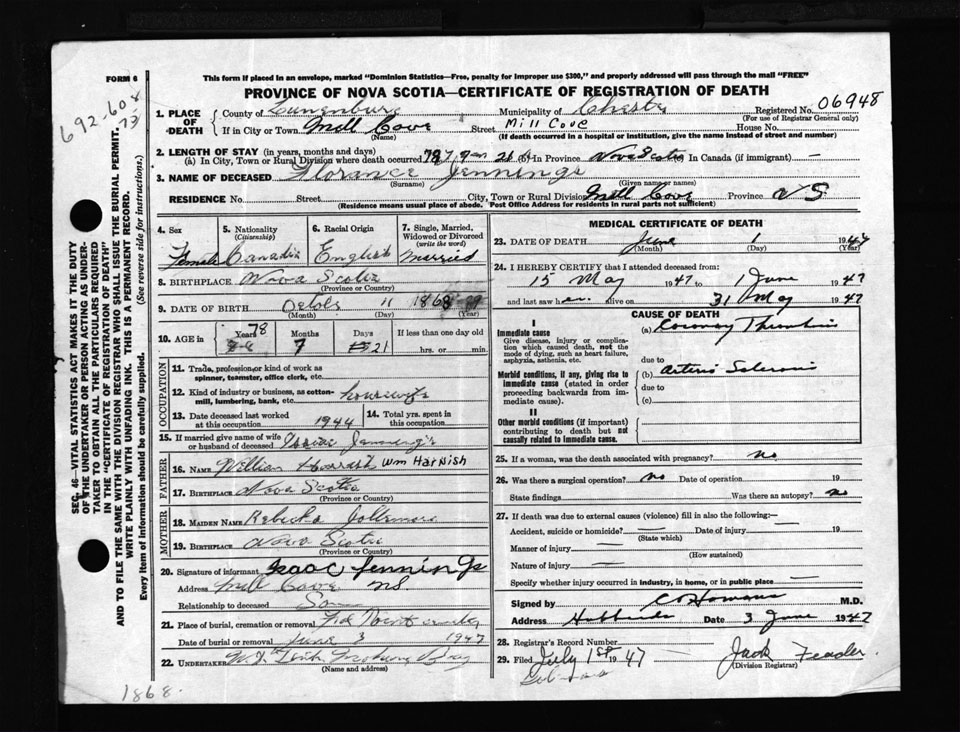 FORM 6
This form if placed in an envelope, marked "Dominion Statistics—Free, penalty for improper use $300," and properly addressed will pass through the mail "FREE"
PROVINCE OF NOVA SCOTIA—CERTIFICATE OF REGISTRATION OF DEATH
692-608
73
1. PLACE OF DEATH
County of Lunenburg Municipality of Chester Registered No. 06948
(For use of Registrar General only)
If in City or Town Mill Cove Street Mill Cove House No.
(Name) (If death occurred in a hospital or institution, give the name instead of street and number)
2. LENGTH OF STAY (in years, months and days)
(a) In City, Town or Rural Division where death occurred 78 7 21 (b) In Province Nova Scotia In Canada (if immigrant) —
3. NAME OF DECEASED Florance Jennings
(Surname) (Given name or names)
RESIDENCE No. Street City, Town or Rural Division Mill Cove Province N S
(Residence means usual place of abode. Post Office Address for residents in rural parts not sufficient)
4. Sex Female
5. Nationality (Citizenship) Canadian
6. Racial Origin English
7. Single, Married, Widowed or Divorced (write the word) Married
8. BIRTHPLACE Nova Scotia
(Province or Country)
9. DATE OF BIRTH 11 1868
(Month) (Day) (Year)
10. AGE in Years 78 Months 7 Days 21 If less than one day old hrs. or min.
OCCUPATION
11. Trade, profession or kind of work as spinner, teamster, office clerk, etc.
12. Kind of industry or business, as cotton-mill, lumbering, bank, etc. housewife
13. Date deceased last worked at this occupation 1944
14. Total yrs. spent in this occupation
15. If married give name of wife or husband of deceased Jennings
FATHER
16. NAME William Wm Harnish
17. BIRTHPLACE Nova Scotia
(Province or Country)
MOTHER
18. MAIDEN NAME
19. BIRTHPLACE Nova Scotia
(Province or Country)
20. Signature of informant Isaac Jennings
Address Mill Cove NS
Relationship to deceased Son
21. Place of burial, cremation or removal
Date of burial or removal June 3 1947
22. UNDERTAKER
(Name and address)
1868.
MEDICAL CERTIFICATE OF DEATH
23. DATE OF DEATH June 1 1947
(Month) (Day) (Year)
24. I HEREBY CERTIFY that I attended deceased from:
15 May 1947 to 1 June 1947
and last saw her alive on 31 May 1947
CAUSE OF DEATH
I
Immediate cause
Give disease, injury or complication which caused death, not the mode of dying, such as heart failure, asphyxia, asthenia, etc.
(a) Coronary Thrombosis
due to
Morbid conditions, if any, giving rise to immediate cause (stated in order proceeding backwards from immediate cause).
(b) Arterio Sclerosis
due to
(c)
II
Other morbid conditions (if important) contributing to death but not causally related to immediate cause.
25. If a woman, was the death associated with pregnancy? no
26. Was there a surgical operation? no Date of operation 19
State findings Was there an autopsy? no
27. If death was due to external causes (violence) fill in also the following:—
Accident, suicide or homicide? — Date of injury — 19
(State which)
Manner of injury —
(How sustained)
Nature of injury —
Specify whether injury occurred in industry, in home, or in public place —
Signed by M.D.
Address Hubbards Date 3 June 1947
28. Registrar's Record Number
29. Filed July 1st 1947 Jack Feader
(Division Registrar)
SEC. 46—VITAL STATISTICS ACT MAKES IT THE DUTY OF THE UNDERTAKER OR PERSON ACTING AS UNDERTAKER TO OBTAIN ALL THE PARTICULARS REQUIRED IN THE "CERTIFICATE OF REGISTRATION OF DEATH" AND TO FILE THE SAME WITH THE DIVISION REGISTRAR WHO SHALL ISSUE THE BURIAL PERMIT.
WRITE PLAINLY WITH UNFADING INK. THIS IS A PERMANENT RECORD.
Every item of information should be carefully supplied. (See reverse side for instructions.)